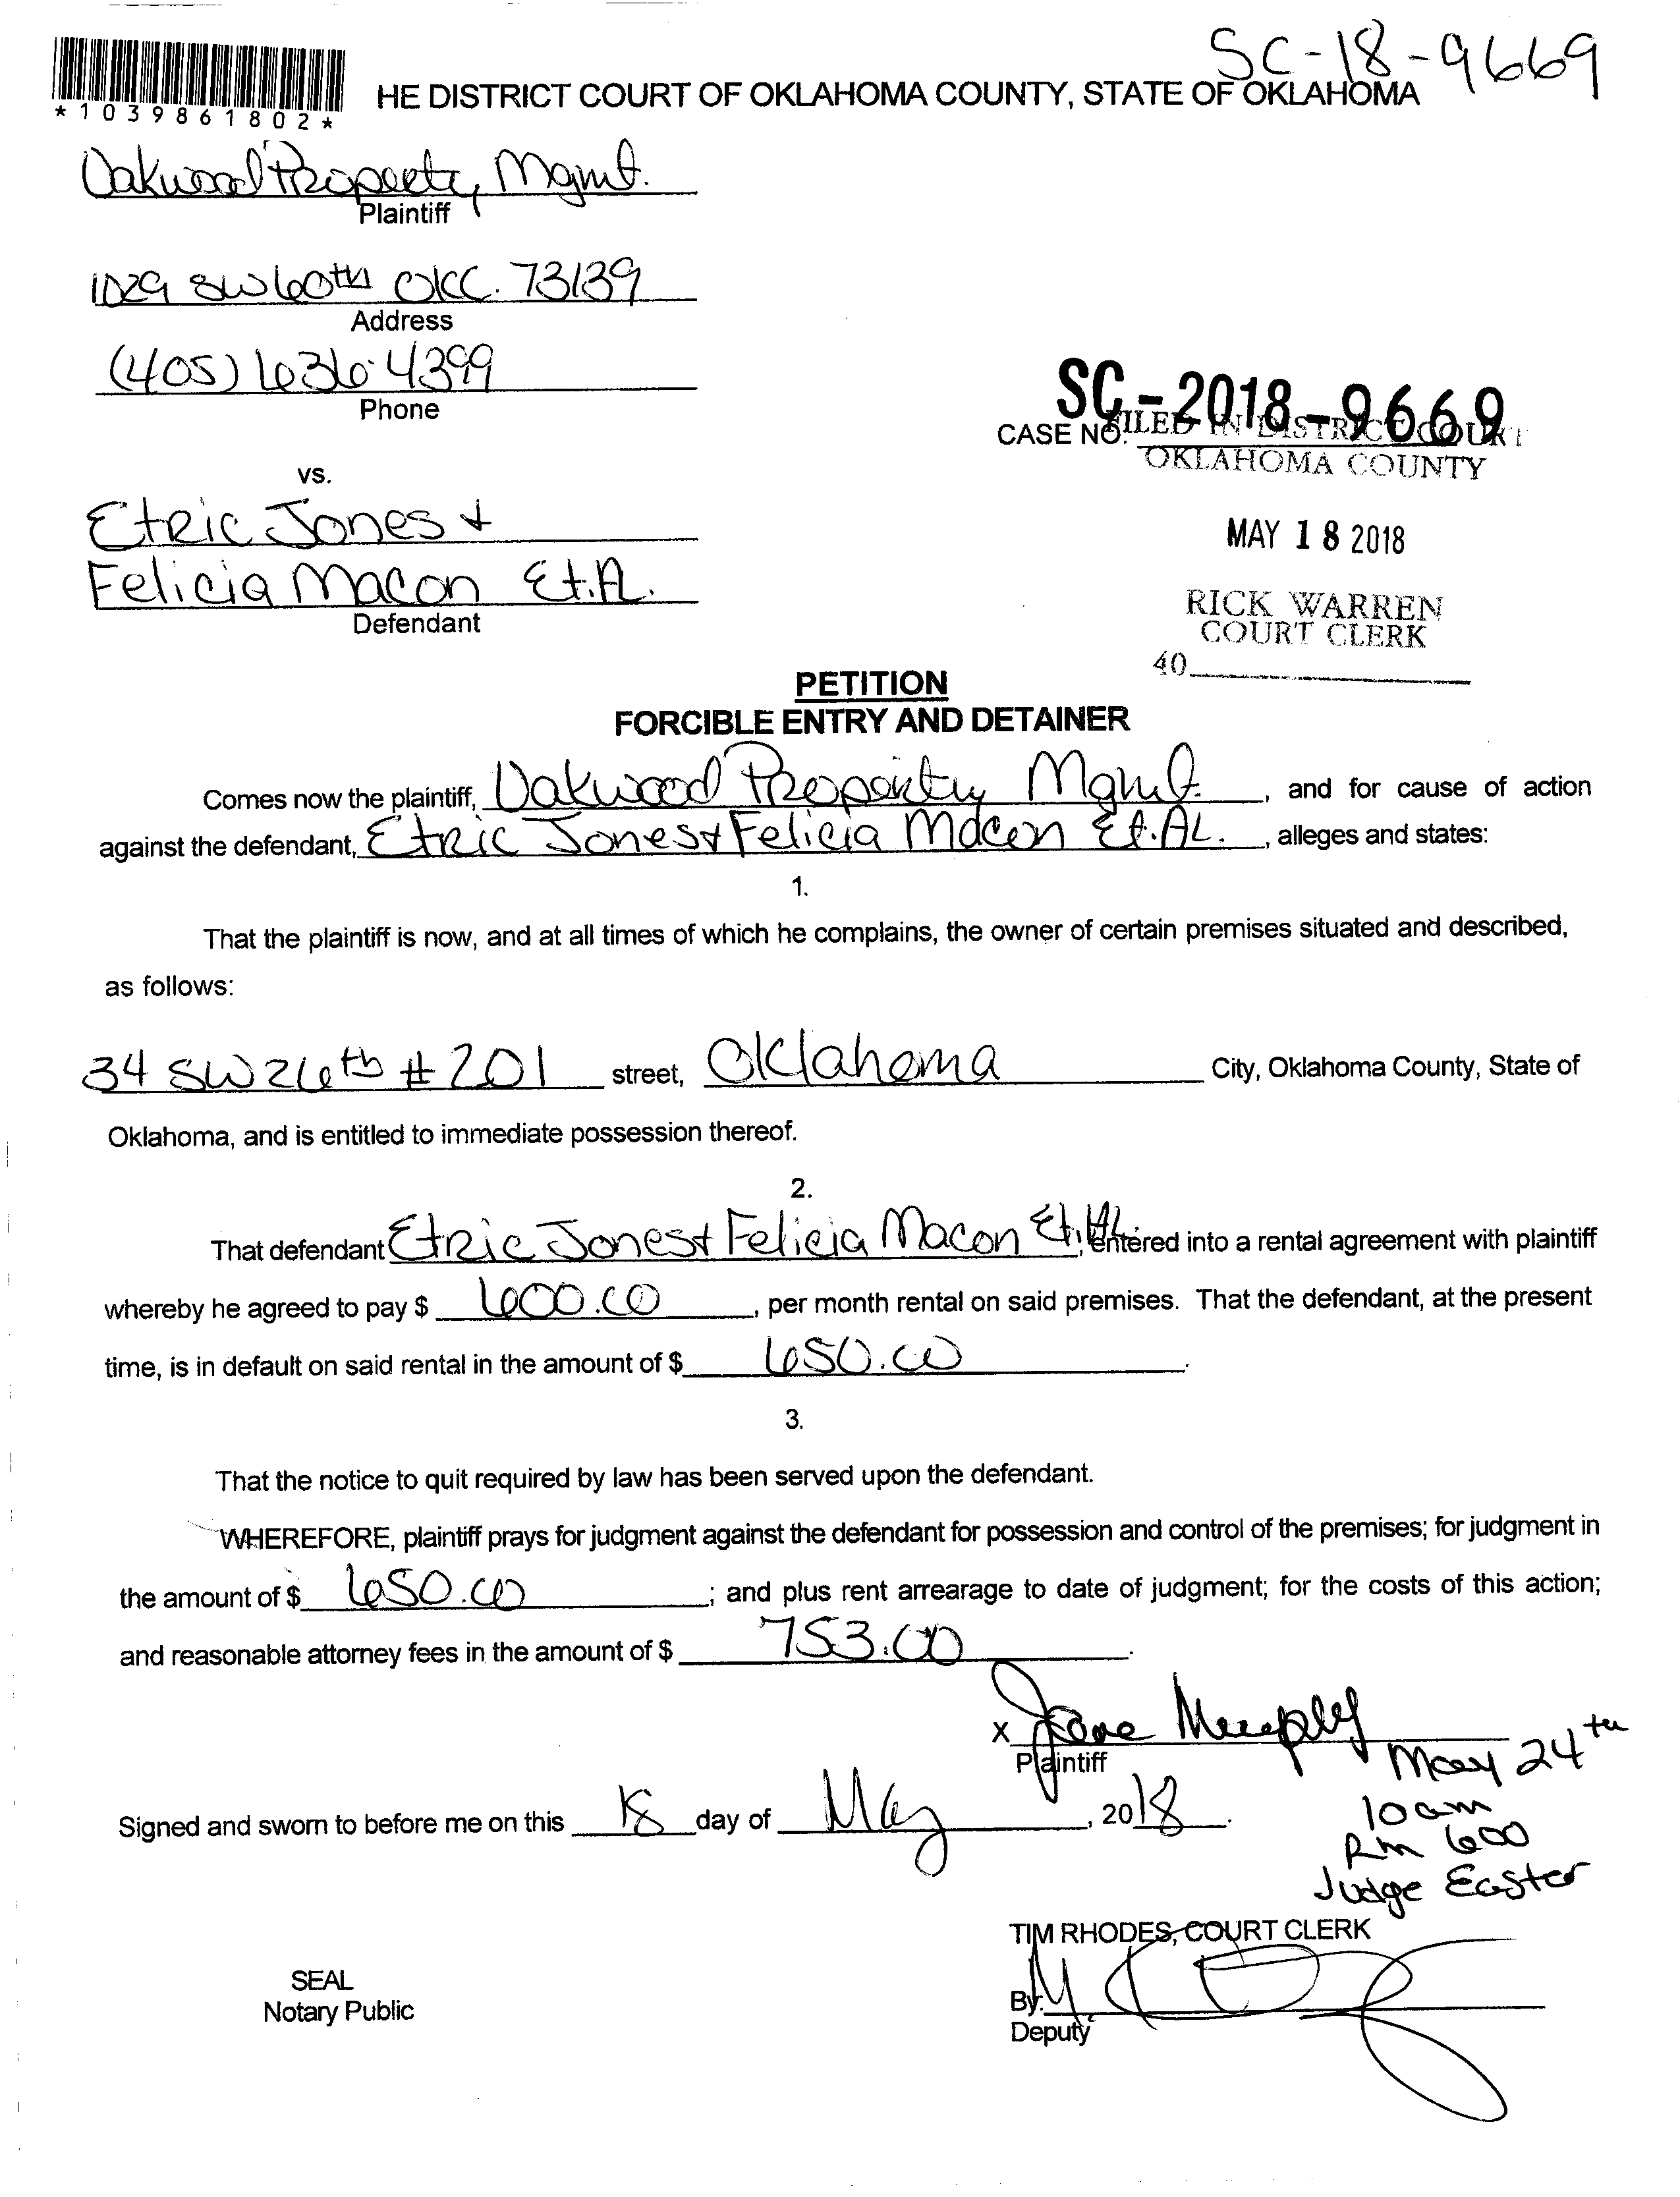 SC-18-9669
*1039861802*
HE DISTRICT COURT OF OKLAHOMA COUNTY, STATE OF OKLAHOMA
Oakwood Property Mgmt.
Plaintiff
1029 SW 60th OKC. 73139
Address
(405) 636-4399
Phone
SC-2018-9669
CASE NO.
FILED IN DISTRICT COURT
OKLAHOMA COUNTY
vs.
Etric Jones +
MAY 18 2018
Felicia Macon Et.A.
Defendant
RICK WARREN
COURT CLERK
40
PETITION
FORCIBLE ENTRY AND DETAINER
Comes now the plaintiff, Oakwood Property Mgmt. , and for cause of action
against the defendant, Etric Jones + Felicia Macon Et.AL. , alleges and states:
1.
That the plaintiff is now, and at all times of which he complains, the owner of certain premises situated and described,
as follows:
34 SW 26th # 201 street, Oklahoma City, Oklahoma County, State of
Oklahoma, and is entitled to immediate possession thereof.
2.
That defendant Etric Jones + Felicia Macon Et.AL. , entered into a rental agreement with plaintiff
whereby he agreed to pay $ 600.00 , per month rental on said premises. That the defendant, at the present
time, is in default on said rental in the amount of $ 650.00 .
3.
That the notice to quit required by law has been served upon the defendant.
WHEREFORE, plaintiff prays for judgment against the defendant for possession and control of the premises; for judgment in
the amount of $ 650.00 ; and plus rent arrearage to date of judgment; for the costs of this action;
and reasonable attorney fees in the amount of $ 753.00 .
X Jane Murphy
Plaintiff
May 24th
10am
Rm 600
Judge Easter
Signed and sworn to before me on this 18 day of May , 2018 .
TIM RHODES, COURT CLERK
SEAL
Notary Public
By:
Deputy